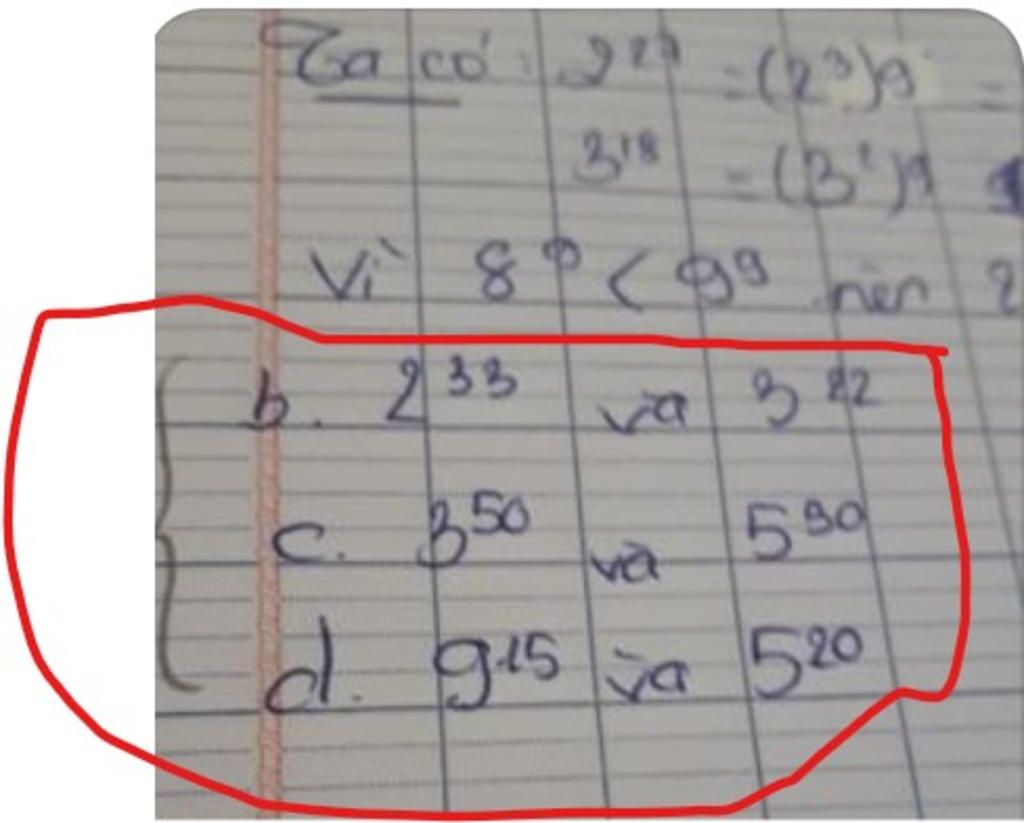 Ta có: 2²⁷ = (2³)⁹ =
3¹⁸ = (3²)⁹
Vì 8⁹ < 9⁹ nên 2
b. 2³³ và 3²²
c. 3⁵⁰ và 5³⁰
d. 9¹⁵ và 5²⁰